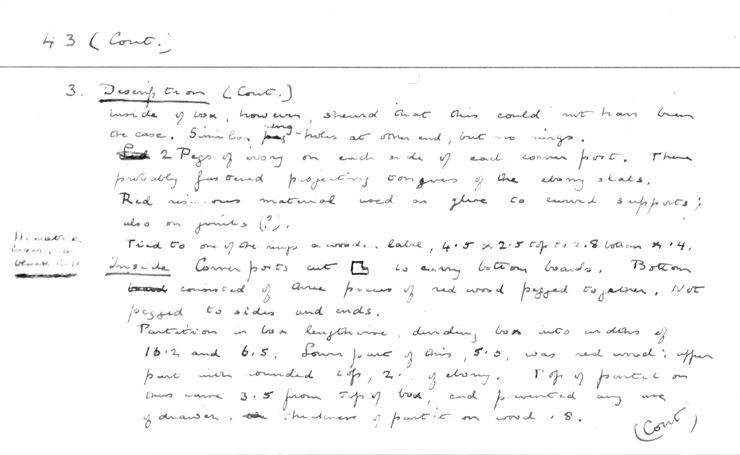 43 (Cont.)
3. Description (Cont.)
inside of box, however, shewed that this could not have been
the case. Similar ring-holes at other end, but no rings.
2 Pegs of ivory on each side of each corner post. These
probably fastened projecting tongues of the ebony slats.
Red resinous material used as glue to curved supports;
also on joints (?).
Tied to one of the rings a wooden label, 4.5 x 2.5 top to 2.8 bottom x .4.
Hieratic
black ink
Inside Corner posts cut to carry bottom boards. Bottom
consisted of three pieces of red wood pegged together. Not
pegged to sides and ends.
Partition in box lengthwise, dividing box into widths of
16.2 and 6.5. Lower part of this, 5.5, was red wood: upper
part with rounded top, 2. of ebony. Top of partition
thus came 3.5 from top of box, and prevented any use
of drawer. Thickness of partition wood .8.
(Cont)